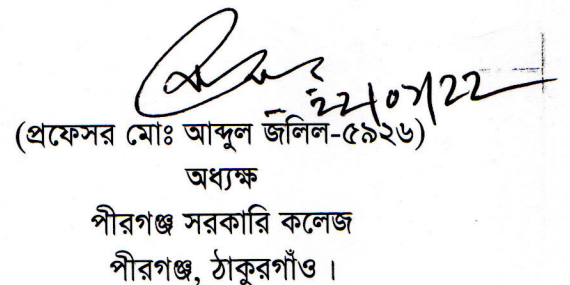 ২২/০৭/২২
(প্রফেসর মোঃ আব্দুল জলিল-৫৯২৬)
অধ্যক্ষ
পীরগঞ্জ সরকারি কলেজ
পীরগঞ্জ, ঠাকুরগাঁও ।